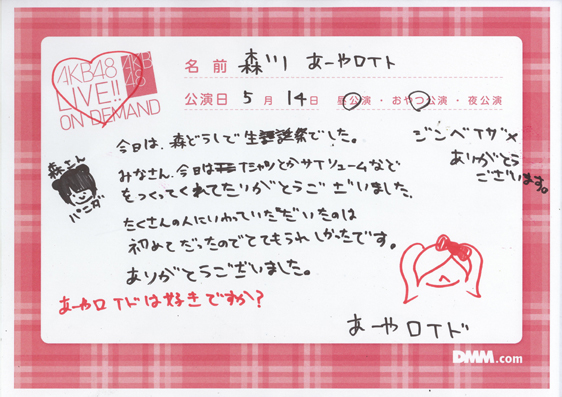 AKB48
LIVE!!
ON DEMAND
AKB
48
名前 森川 あーやロイド
公演日 5月14日 昼公演・おやつ公演・夜公演
今日は、森どうしで生誕祭でした。
みなさん、今日はTシャツとかサイリュームなど
をつくってくれてありがとうございました。
たくさんの人にいわっていただいたのは
初めてだったのでとてもうれしかったです。
ありがとうございました。
あーやロイドは好きですか?
森さん
パニダ
ジンベイザメ
ありがとう
ございます。
あーやロイド
DMM.com